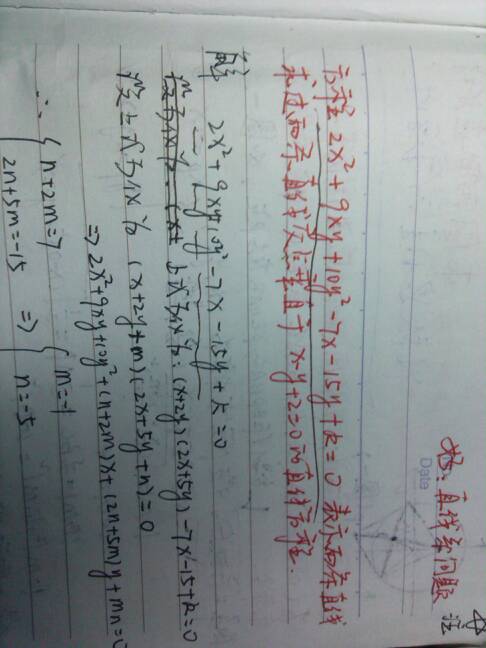 拓: 直线系问题 注
Date
方程 2x²+9xy+10y²-7x-15y+k=0 表示两条直线
求过两条直线交点且垂直于 x-y+2=0的直线方程.
解 2x²+9xy+10y²-7x-15y+k=0
上式可化为: (x+2y)(2x+5y)-7x-15+k=0
设上式可化为 (x+2y+m)(2x+5y+n)=0
⇒ 2x²+9xy+10y²+(n+2m)x+(2n+5m)y+mn=0
∴ { n+2m=7 { m=-1
2n+5m=-15 ⇒ n=-5